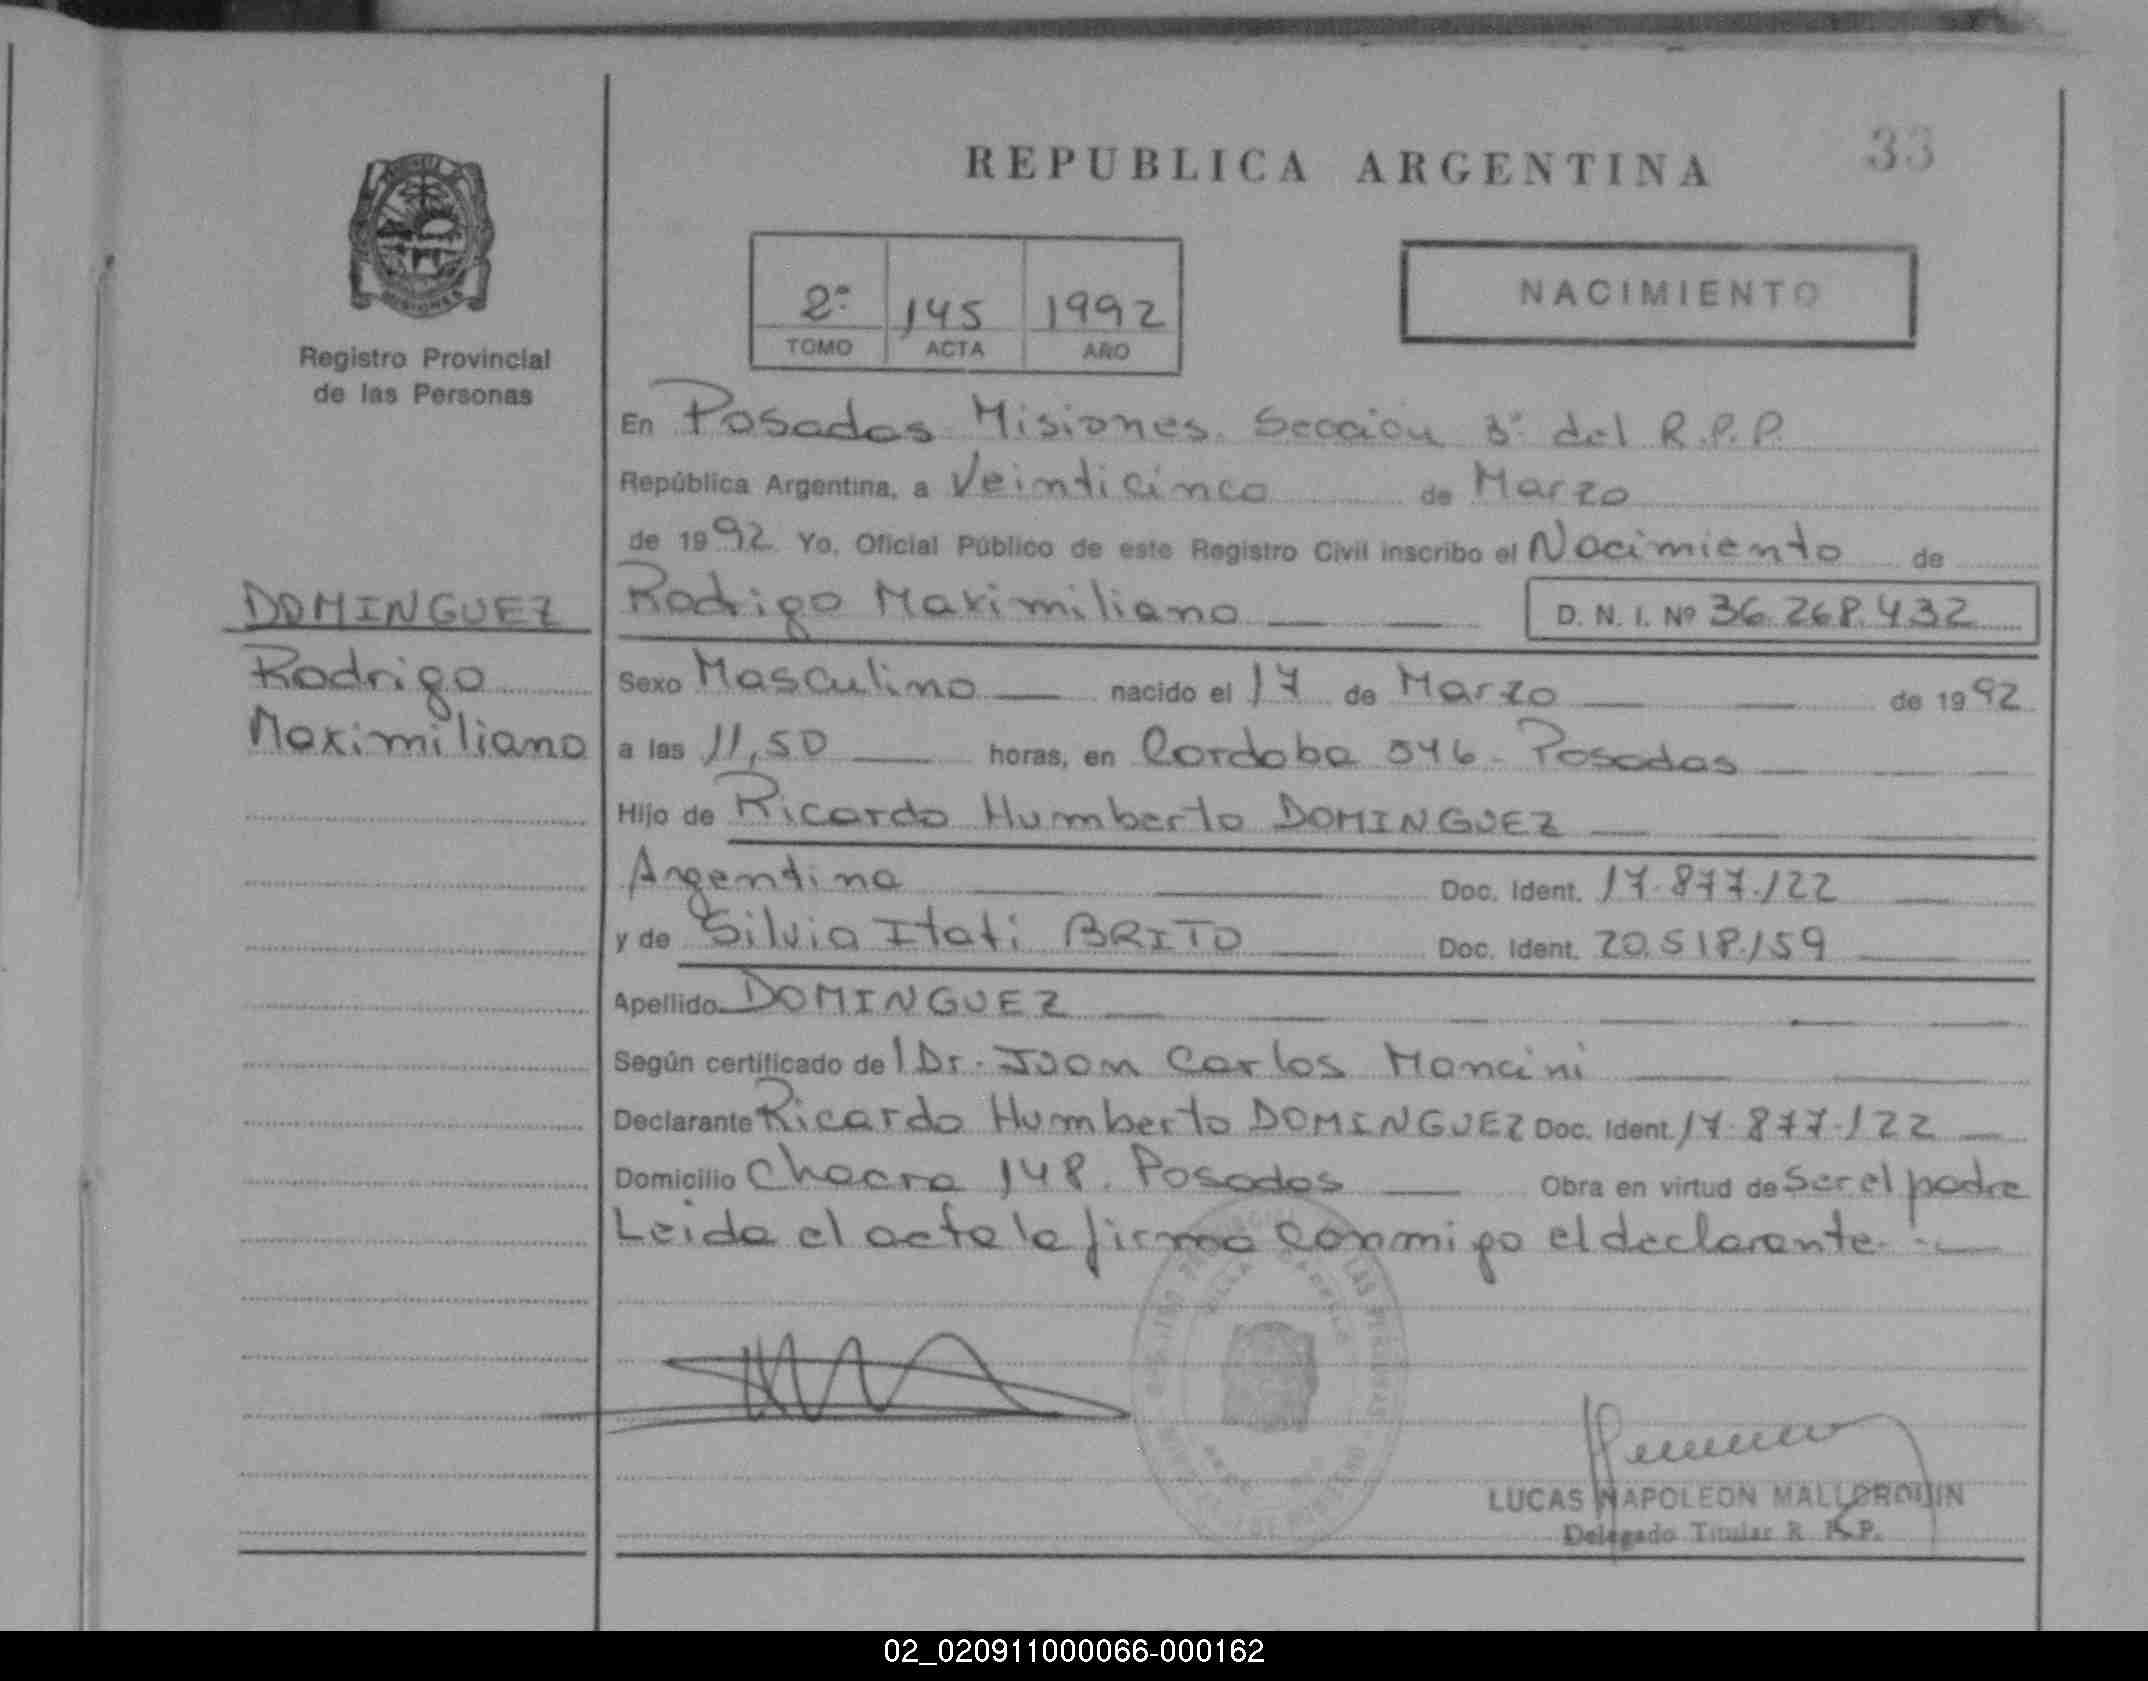 33
REPUBLICA ARGENTINA
2º 145 1992
TOMO ACTA AÑO
NACIMIENTO
Registro Provincial
de las Personas
En Posadas Misiones. Sección 3º del R.P.P.
República Argentina, a Veinticinco de Marzo
de 1992. Yo, Oficial Público de este Registro Civil inscribo el Nacimiento de
DOMINGUEZ
Rodrigo
Maximiliano
Rodrigo Maximiliano D. N. I. Nº 36.268.432
Sexo Masculino nacido el 17 de Marzo de 1992
a las 11,50 horas, en Cordoba 546 - Posadas
Hijo de Ricardo Humberto DOMINGUEZ
Argentina Doc. Ident. 17.877.122
y de Silvia Itati BRITO Doc. Ident. 20.518.159
Apellido DOMINGUEZ
Según certificado del Dr. Juan Carlos Mancini
Declarante Ricardo Humberto DOMINGUEZ Doc. Ident. 17.877.122
Domicilio Chacra 148. Posadas Obra en virtud de ser el padre
Leida el acta la firma conmigo el declarante.
LUCAS NAPOLEON MALLORQUIN
Delegado Titular R. P. P.
02_020911000066-000162